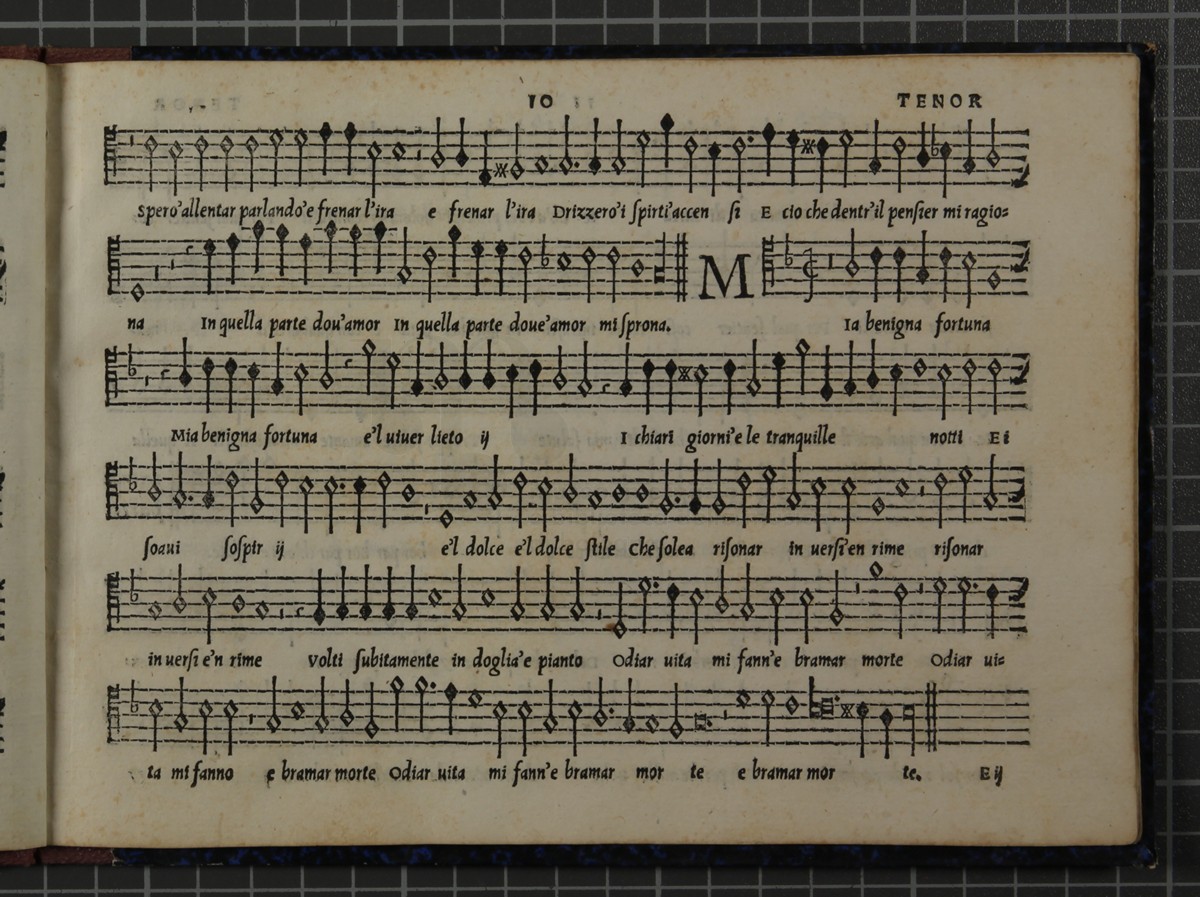 10 TENOR
Spero'allentar parlando'e frenar l'ira e frenar l'ira Drizzero'i ſpirti'accen ſi E cio che dentr'il penſier mi ragio=
M
na In quella parte dou'amor In quella parte doue'amor mi ſprona. Ia benigna fortuna
Mia benigna fortuna e'l uiuer lieto ij I chiari giorni'e le tranquille notti E i
ſoaui ſoſpir ij e'l dolce e'l dolce ſtile Che ſolea riſonar in uerſi'en rime riſonar
in uerſi e'n rime Volti ſubitamente in doglia'e pianto Odiar uita mi fann'e bramar morte Odiar ui=
ta mi fanno e bramar morte Odiar uita mi fann'e bramar mor te e bramar mor te. E ij